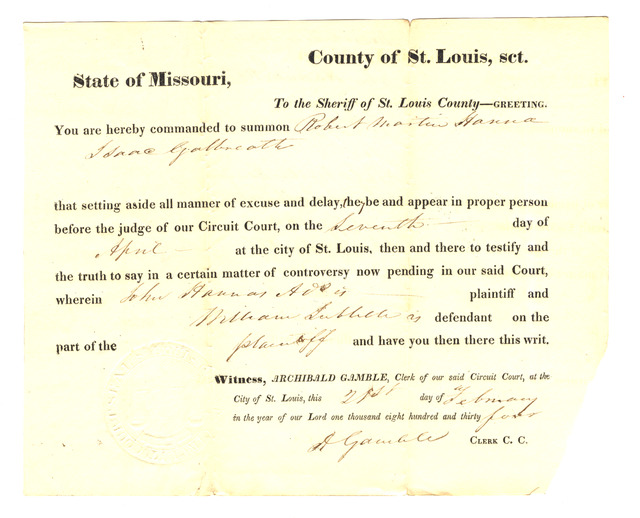 County of St. Louis, sct.
State of Missouri,
To the Sheriff of St. Louis County—GREETING.
You are hereby commanded to summon Robert Martin Hanna
Isaac Galbreath
that setting aside all manner of excuse and delay, they be and appear in proper person
before the judge of our Circuit Court, on the Seventh day of
April at the city of St. Louis, then and there to testify and
the truth to say in a certain matter of controversy now pending in our said Court,
wherein John Hannas plaintiff and
William is defendant on the
part of the plaintiff and have you then there this writ.
Witness, ARCHIBALD GAMBLE, Clerk of our said Circuit Court, at the
City of St. Louis, this 21st day of February
in the year of our Lord one thousand eight hundred and thirty four
A Gamble CLERK C. C.